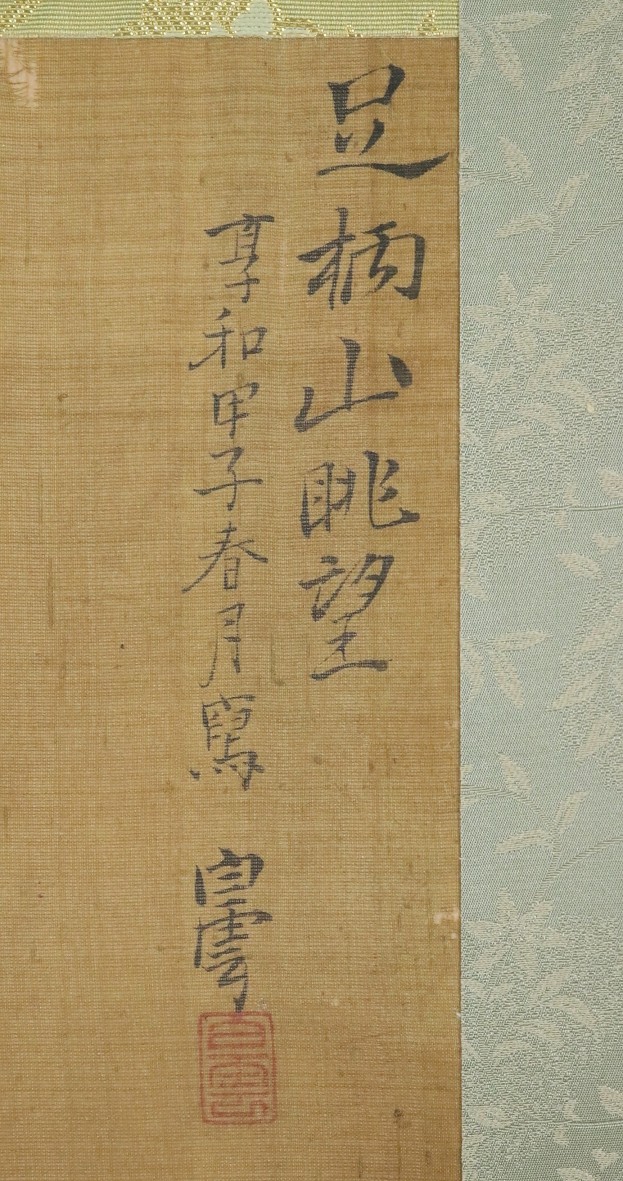 足柄山眺望
享和甲子春月寫 白雲
白雲